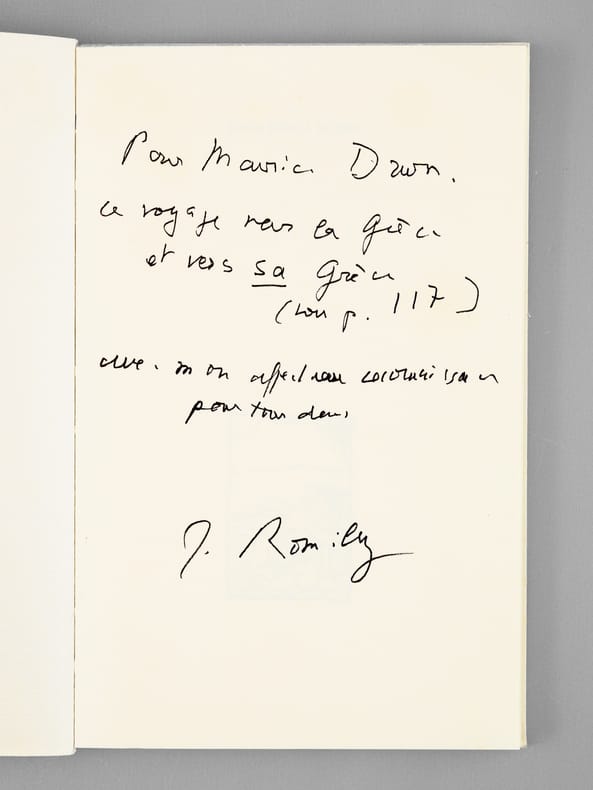 Pour Maurice Druon.
ce voyage vers la Grèce
et vers sa Grèce
(voir p. 117)
avec mon affectueuse reconnaissance
pour tout
J. Romilly